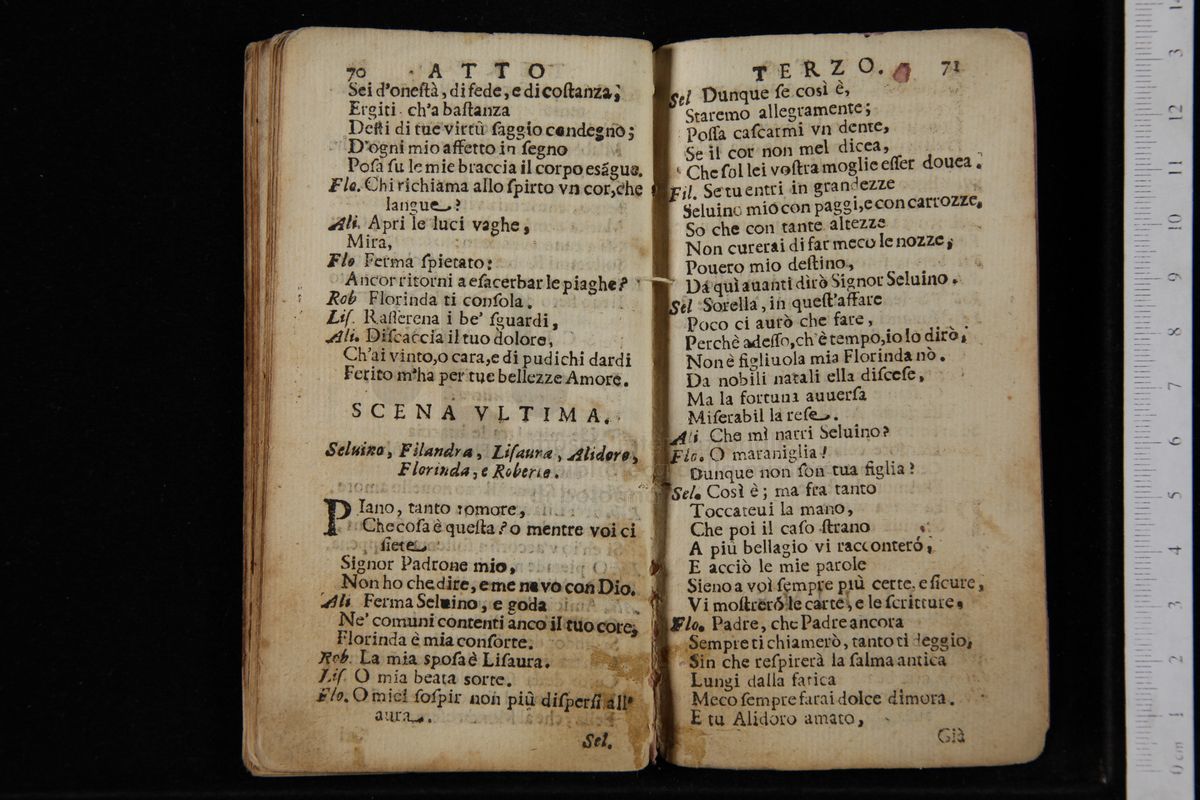 70 ATTO
Sei d'oneſtà, di fede, e di coſtanza;
Ergiti ch'a baſtanza
Deſti di tue virtù ſaggio condegno;
D'ogni mio affetto in ſegno
Poſa ſu le mie braccia il corpo esãgue.
Flo. Chi richiama allo ſpirto vn cor, che
langue?
Ali. Apri le luci vaghe,
Mira,
Flo Ferma ſpietato:
Ancor ritorni a eſacerbar le piaghe?
Rob Florinda ti conſola.
Liſ. Raſſerena i be' ſguardi,
Ali. Diſcaccia il tuo dolore,
Ch'ai vinto, o cara, e di pudichi dardi
Ferito m'ha per tue bellezze Amore.
SCENA VLTIMA.
Seluino, Filandra, Liſaura, Alidoro,
Florinda, e Roberto.
PIano, tanto romore,
Che coſa è queſta? o mentre voi ci
ſiete
Signor Padrone mio,
Non ho che dire, e me ne vo con Dio.
Ali Ferma Seluino, e goda
Ne' comuni contenti anco il tuo core;
Florinda è mia conſorte.
Rob. La mia spoſa è Liſaura.
Liſ. O mia beata sorte.
Flo. O miei ſoſpir non più diſperſi all'
aura.
Sel.
TERZO. 71
Sel Dunque ſe così è,
Staremo allegramente;
Poſſa caſcarmi vn dente,
Se il cor non mel dicea,
Che ſol lei voſtra moglie eſſer douea.
Fil. Se tu entri in grandezze
Seluino mio con paggi, e con carrozze,
So che con tante altezze
Non curerai di far meco le nozze;
Pouero mio deſtino,
Da quì auanti dirò Signor Seluino.
Sel Sorella, in queſt'affare
Poco ci aurò che fare,
Perchè adeſſo, ch'è tempo, io lo dirò;
Non è figliuola mia Florinda nò.
Da nobili natali ella diſceſe,
Ma la fortuna auuerſa
Miſerabil la reſe.
Ali Che mì narri Seluino?
Flo. O marauiglia!
Dunque non ſon tua figlia?
Sel. Così è; ma fra tanto
Toccateui la mano,
Che poi il caſo ſtrano
A più bell'agio vi racconterò,
E acciò le mie parole
Sieno a voi ſempre più certe, e ſicure,
Vi moſtrerò le carte, e le ſcritture.
Flo. Padre, che Padre ancora
Sempre ti chiamerò, tanto ti deggio,
Sin che reſpirerà la ſalma antica
Lungi dalla fatica
Meco ſempre farai dolce dimora.
E tu Alidoro amato,
Già